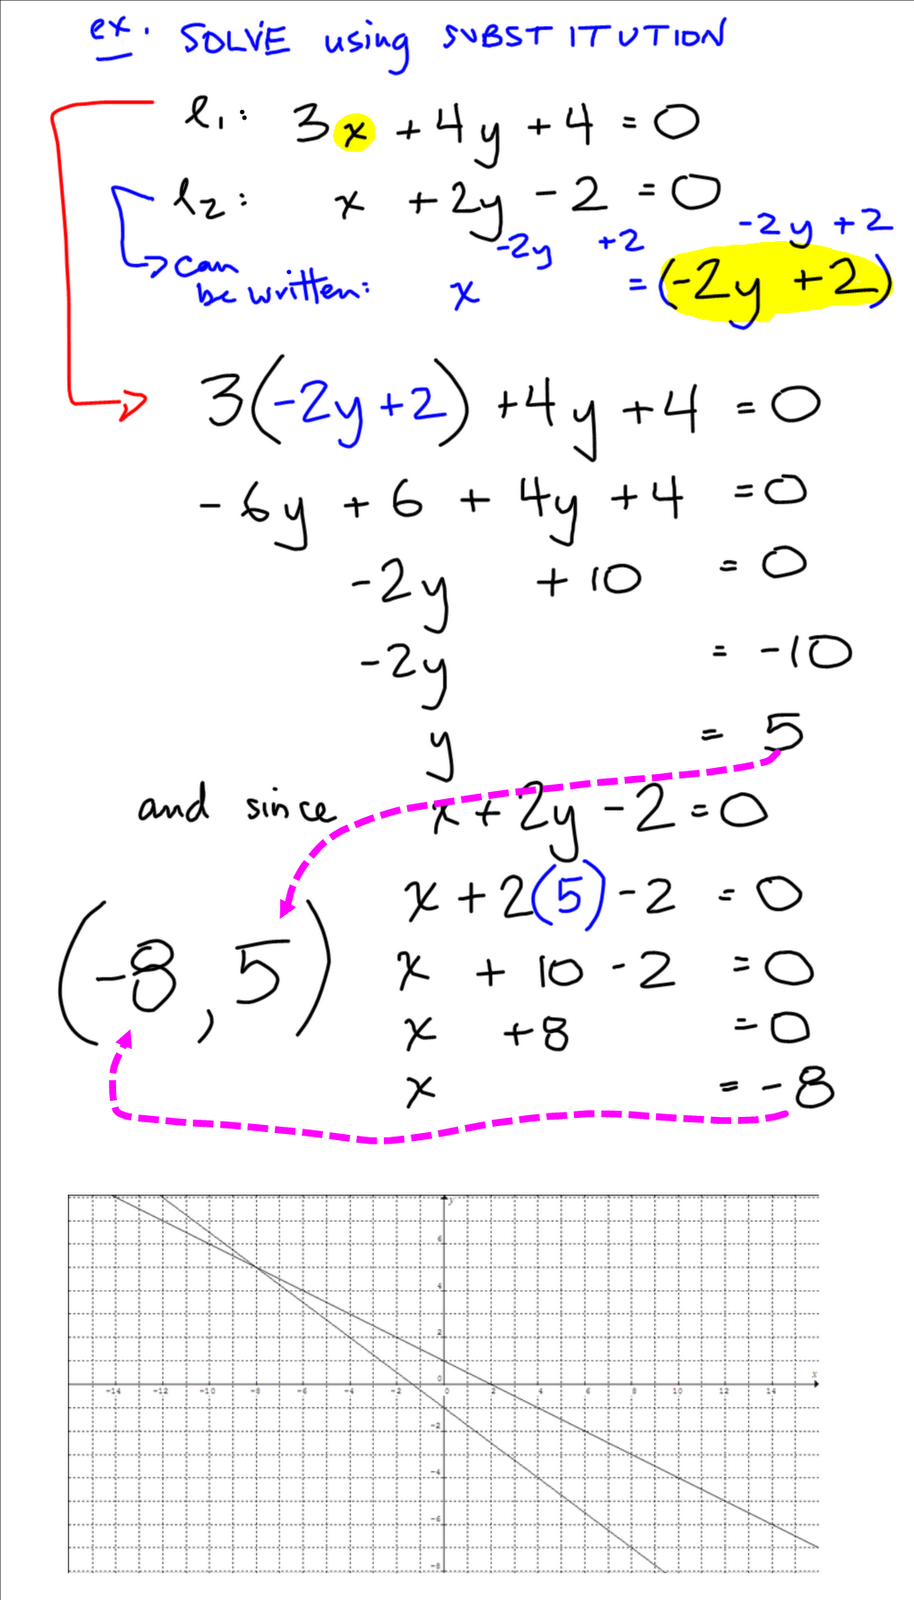 ex. SOLVE using SUBSTITUTION
l₁: 3x + 4y + 4 = 0
l₂: x + 2y - 2 = 0
-2y +2 -2y +2
can be written: x = (-2y + 2)
3(-2y+2) + 4y + 4 = 0
-6y + 6 + 4y + 4 = 0
-2y + 10 = 0
-2y = -10
y = 5
and since x + 2y - 2 = 0
x + 2(5) - 2 = 0
(-8, 5)
x + 10 - 2 = 0
x + 8 = 0
x = -8
y
6
4
2
0
x
-14 -12 -10 -8 -6 -4 -2 0 2 4 6 8 10 12 14
-2
-4
-6
-8